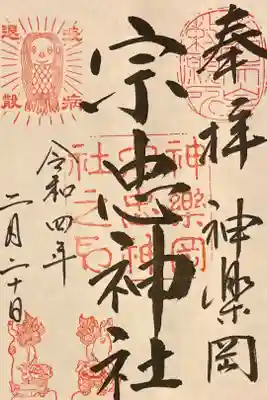 奉拝 神楽岡
宗忠神社
令和四年
二月二十日
疫病
退散
神樂岡
宗忠神
社之印